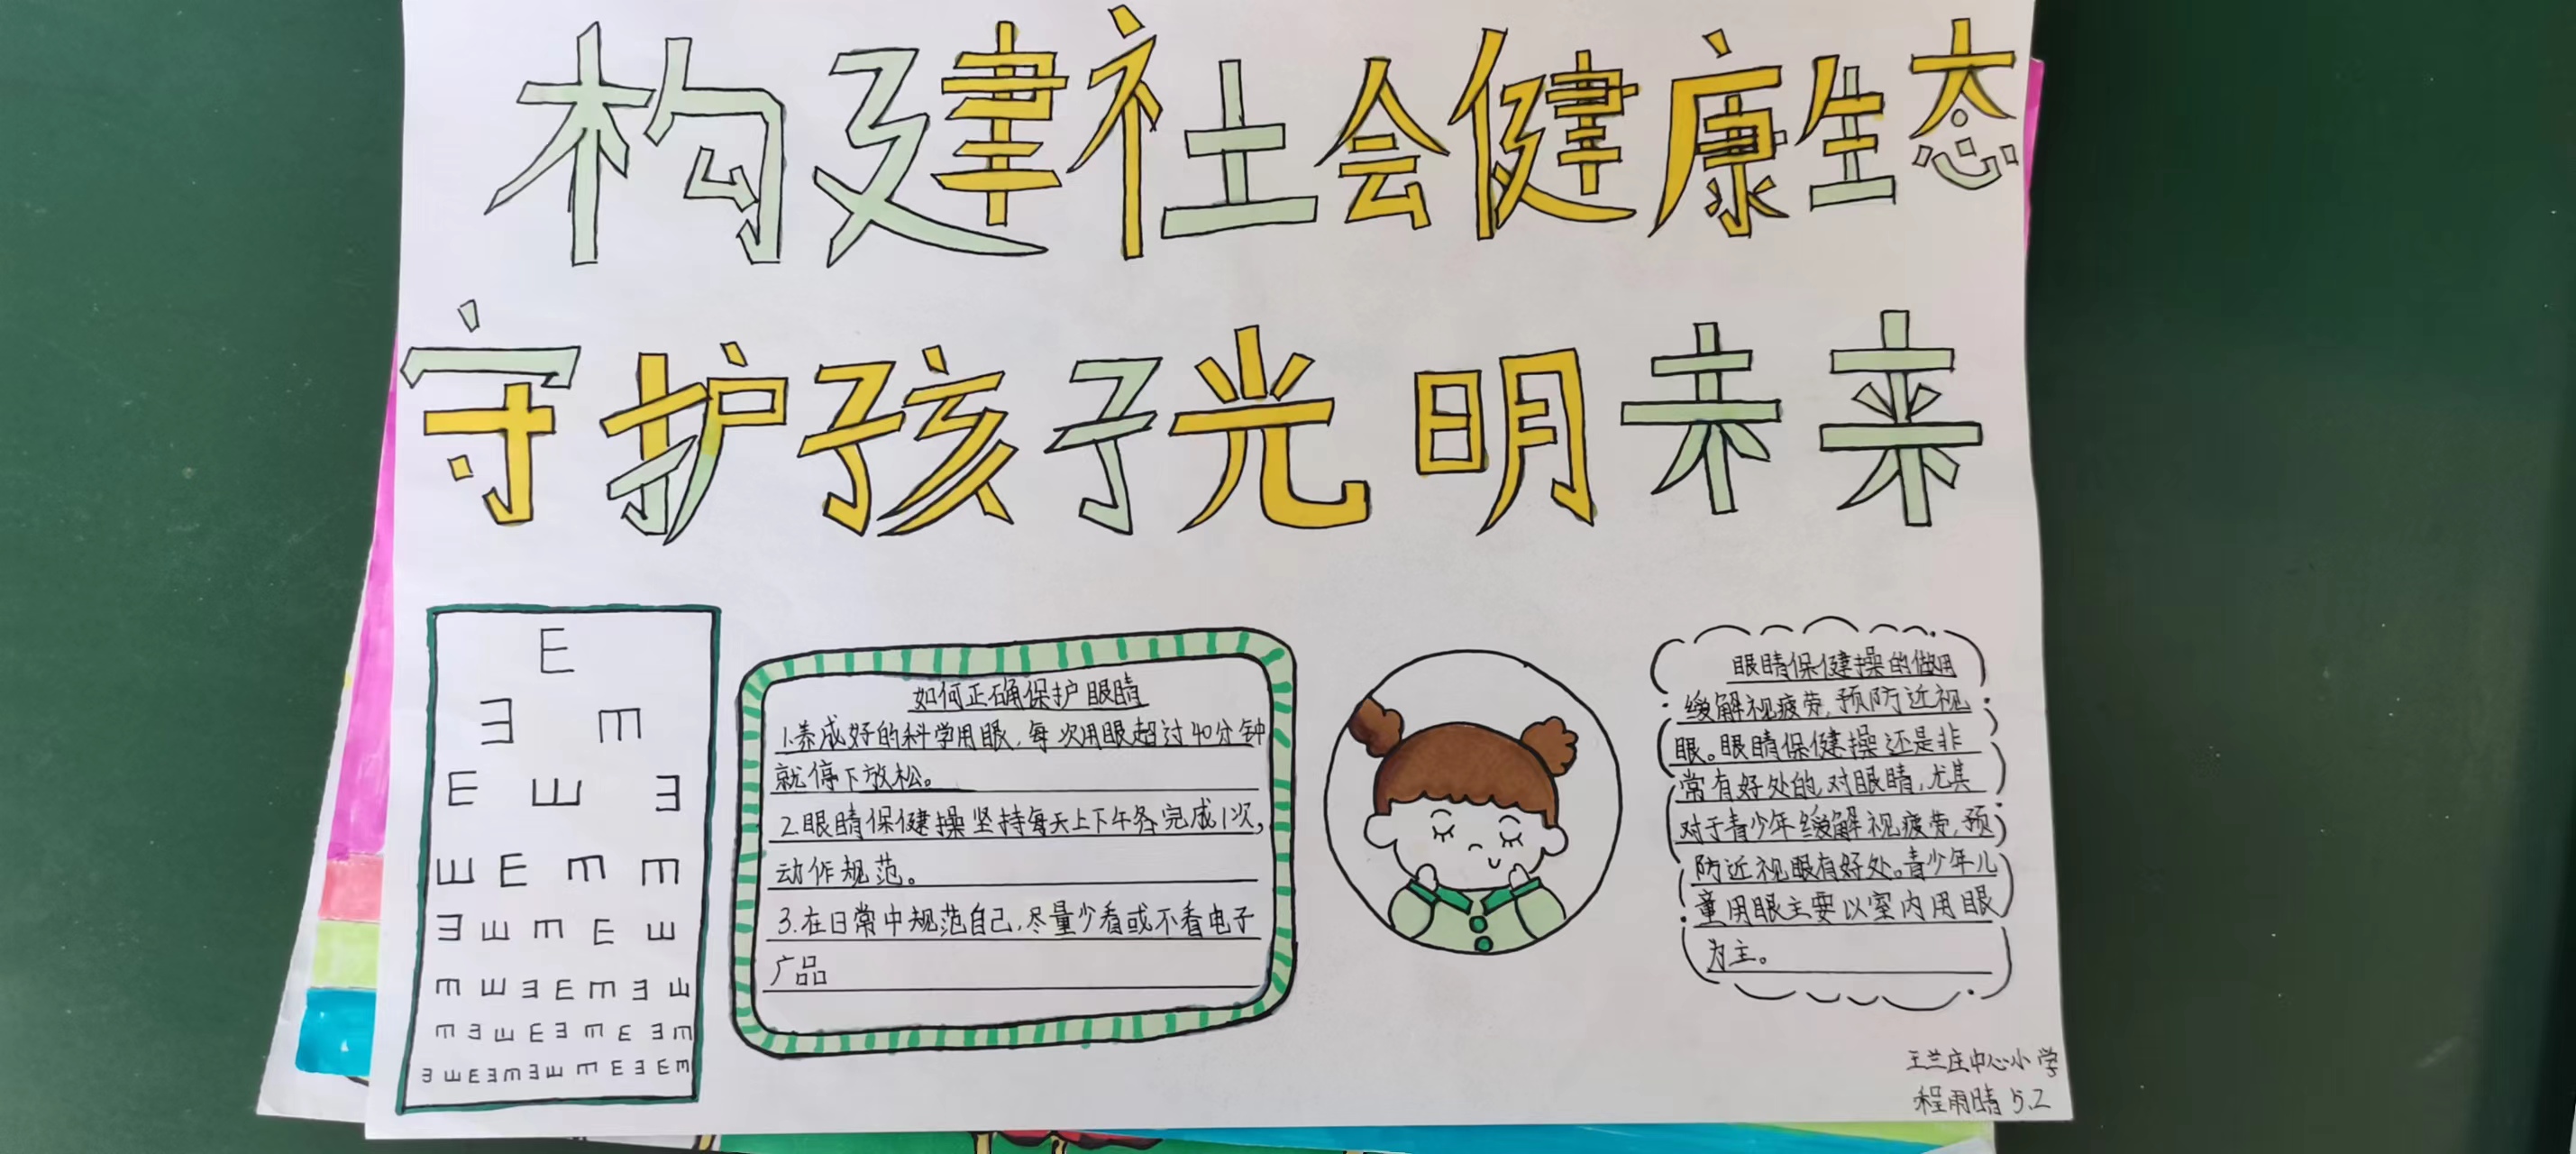 构建社会健康生态
守护孩子光明未来
E
E E
E E E
E E E E
E E E E E
E E E E E E E
E E E E E E E E E
E E E E E E E E E E E
如何正确保护眼睛
1.养成好的科学用眼,每次用眼超过40分钟
就停下放松。
2.眼睛保健操坚持每天上下午各完成1次,
动作规范。
3.在日常中规范自己,尽量少看或不看电子
广品
眼睛保健操的做用
缓解视疲劳,预防近视
眼。眼睛保健操还是非
常有好处的,对眼睛,尤其
对于青少年缓解视疲劳,预
防近视眼有好处。青少年儿
童用眼主要以室内用眼
为主。
王兰庄中心小学
程雨晴 5.2